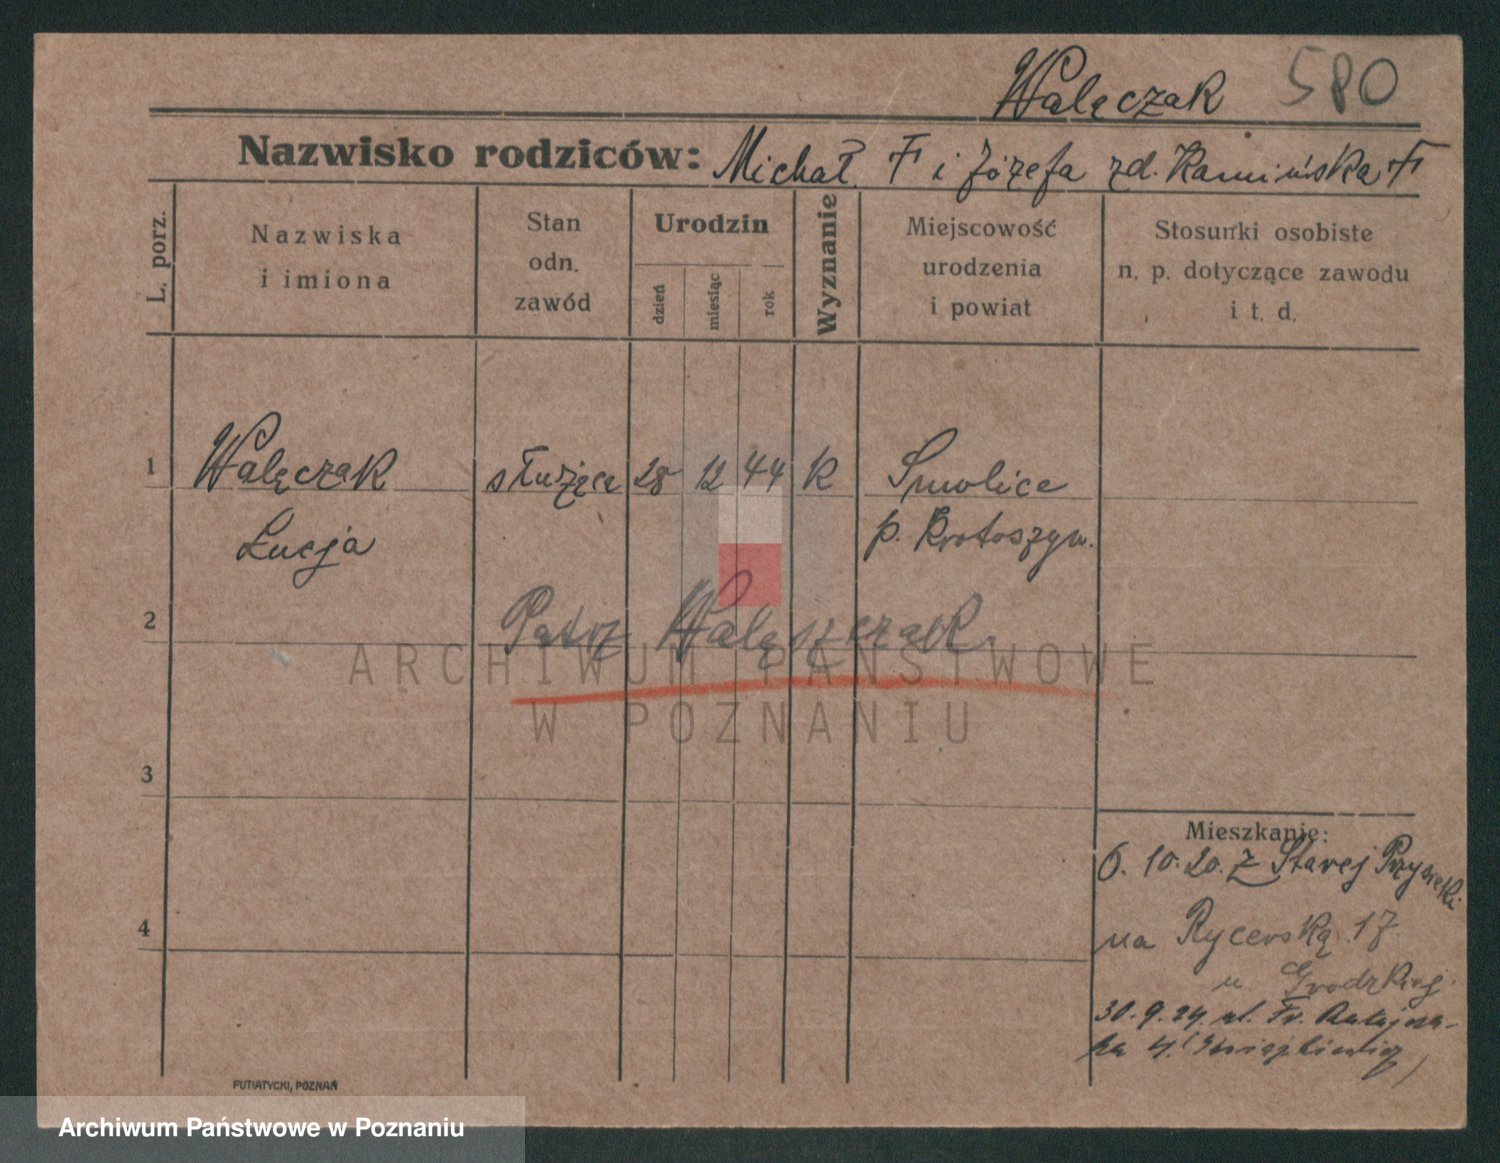 Walęczak 580
Nazwisko rodziców: Michał. F i Józefa zd. Kamińska F
L. porz.
Nazwiska
i imiona
Stan
odn.
zawód
Urodzin
dzień
miesiąc
rok
Wyznanie
Miejscowość
urodzenia
i powiat
Stosunki osobiste
n. p. dotyczące zawodu
i t. d.
1 Walęczak służąca 28 12 44 k Smolice
Łucja p. Krotoszyn.
2 Patrz Walęszczak.
ARCHIWUM PAŃSTWOWE
W POZNANIU
3
Mieszkanie:
6. 10. 20. z Starej Przysieki
4
na Rycerską 17.
u Grodzkiej
30. 9. 24. ul. Fr. Ratajcza-
ka 4.
PUTIATYCKI, POZNAŃ
Archiwum Państwowe w Poznaniu